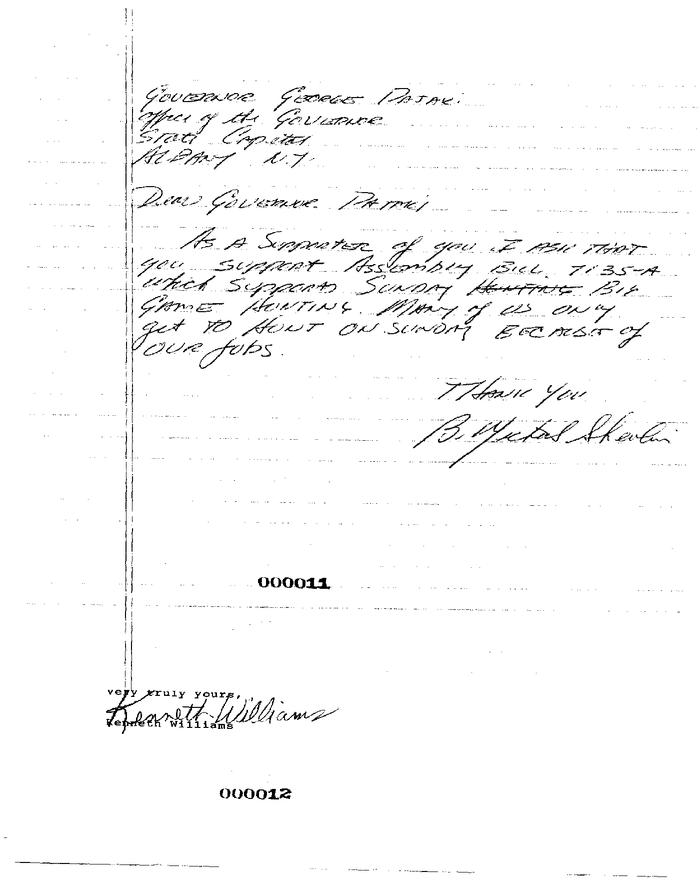 GOVERNOR GEORGE PATAKI
office of the GOVERNOR
STATE Capitol
ALBANY N.Y.
Dear GOVERNOR PATAKI
AS A SUPPORTER of you I ASK THAT
you SUPPORT ASSEMBLY BILL 7135-A
which SUPPORTS SUNDAY HUNTING BIG
GAME HUNTING. MANY of US ONLY
get TO HUNT ON SUNDAY BECAUSE of
OUR JOBS.
THANK YOU
B. Michael
000011
very truly yours,
Kenneth Williams
Kenneth Williams
000012